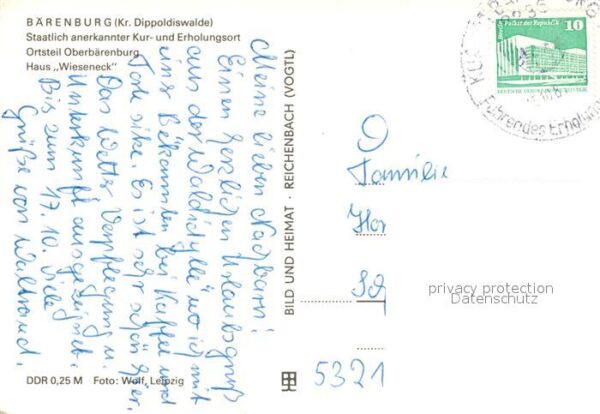 BÄRENBURG (Kr. Dippoldiswalde)
Staatlich anerkannter Kur- und Erholungsort
Ortsteil Oberbärenburg
Haus „Wieseneck"
Meine lieben Nachbarn!
Einen herzlichen Urlaubsgruß
aus der „Waldidylle" wo ich mit
uns Bekannten bei Kaffee und
Torte sitze. Es ist sehr schön hier.
Das Wetter, Verpflegung u.
Unterkunft ausgezeichnet.
Bis zum 17.10. Viele
Grüße von Waltraud.
DDR 0,25 M Foto: Wolf, Leipzig
BILD UND HEIMAT · REICHENBACH (VOGTL)
Berlin Palast der Republik
10
Führendes Erholung
Familie
Hor
Sch
privacy protection
Datenschutz
5321